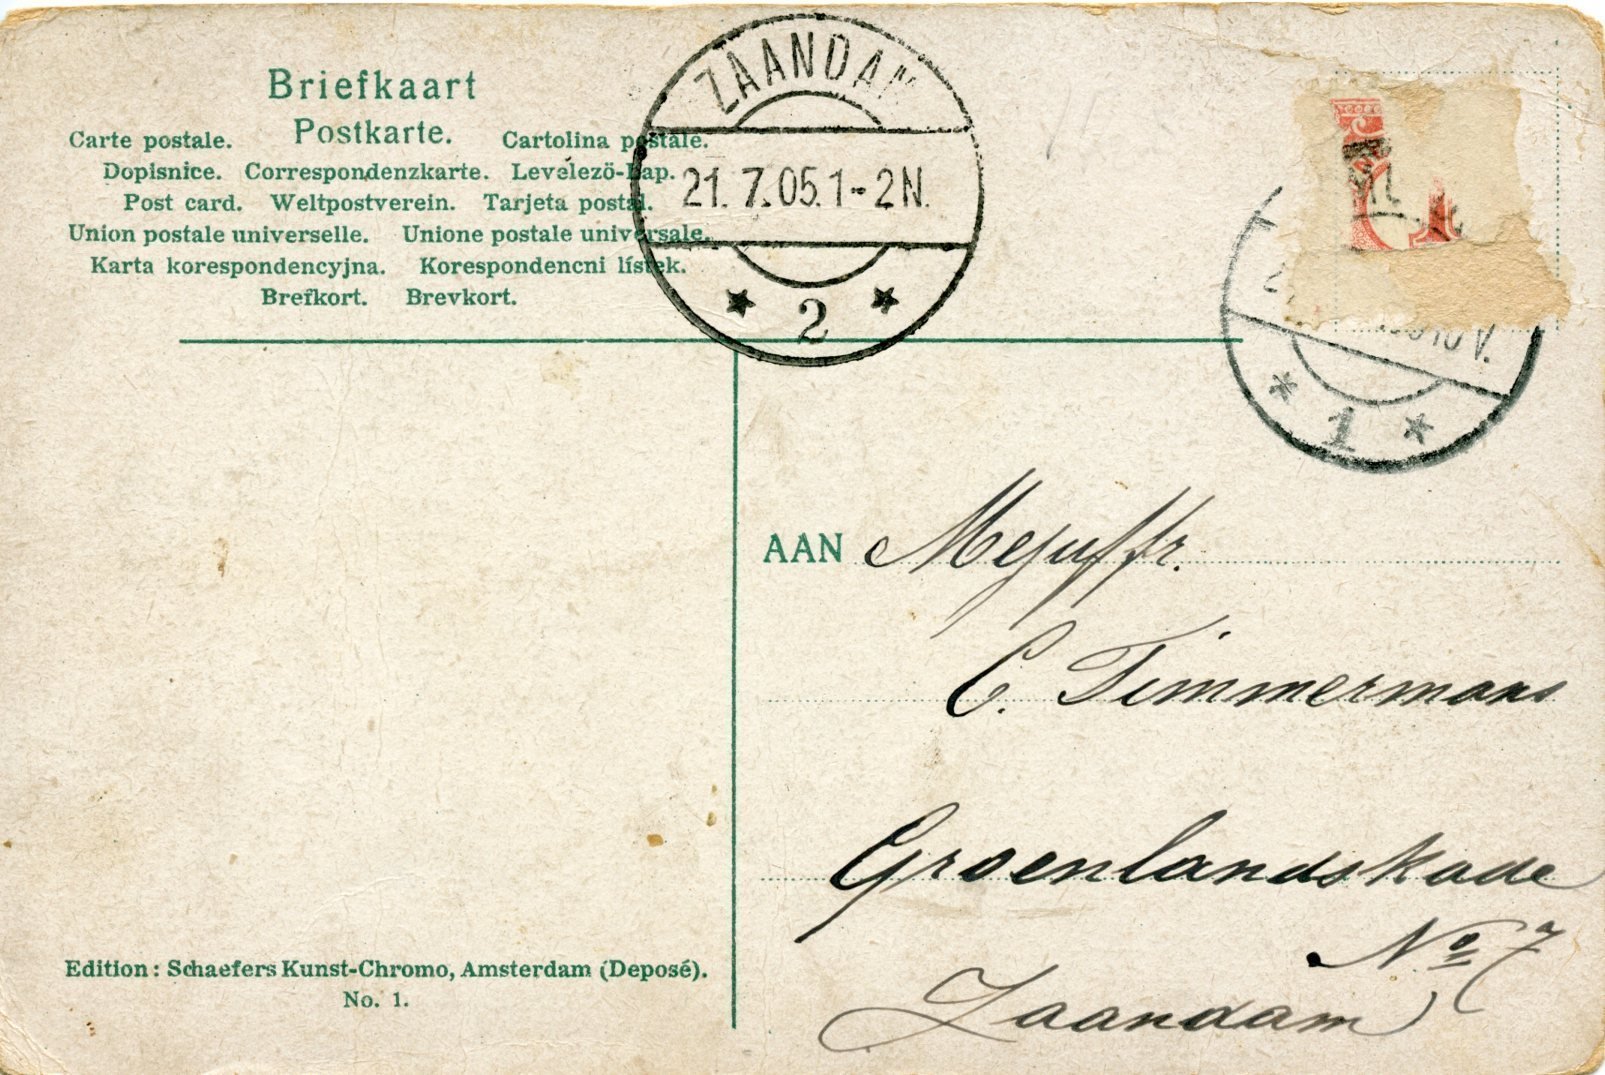 Briefkaart
Postkarte.
Carte postale. Cartolina postale.
Dopisnice. Correspondenzkarte. Levelezö-Lap.
Post card. Weltpostverein. Tarjeta postal.
Union postale universelle. Unione postale universale.
Karta korespondencyjna. Korespondencni lístek.
Brefkort. Brevkort.
ZAANDAM
21.7.05.1-2N.
2
1
AAN Mejuffr.
C. Timmermans
Groenlandskade
No 7
Zaandam
Edition: Schaefers Kunst-Chromo, Amsterdam (Deposé).
No. 1.